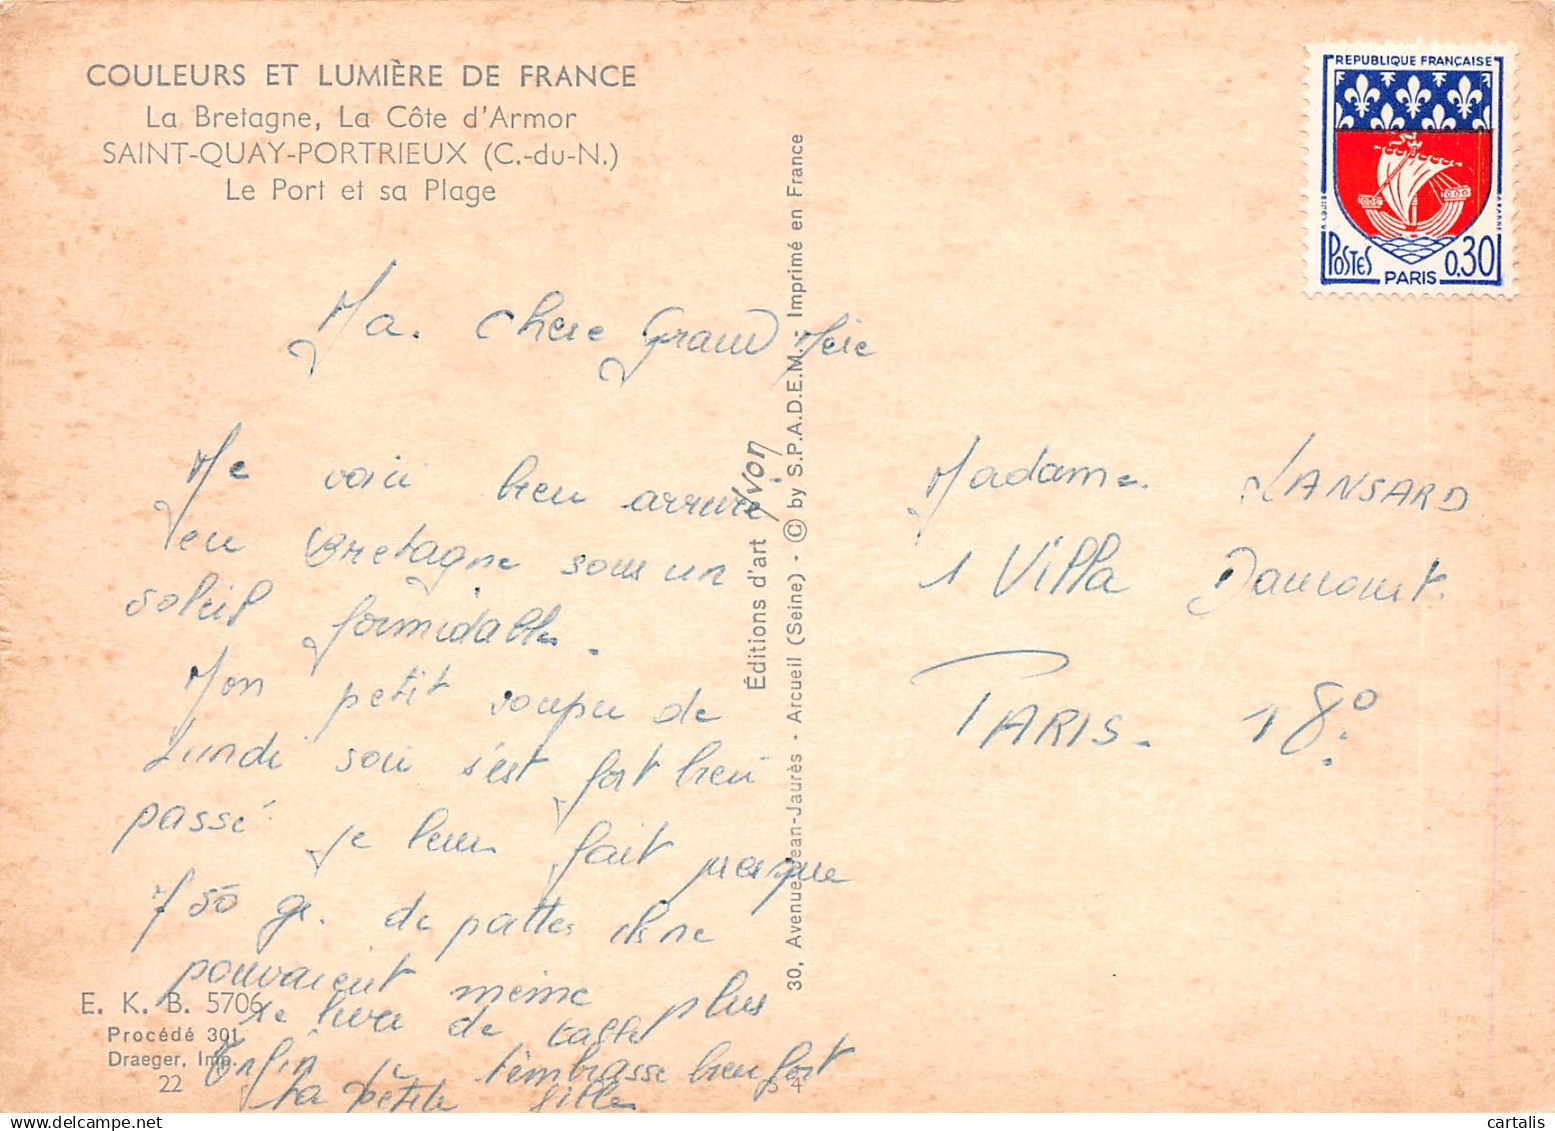 COULEURS ET LUMIÈRE DE FRANCE
La Bretagne, La Côte d'Armor
SAINT-QUAY-PORTRIEUX (C.-du-N.)
Le Port et sa Plage
REPUBLIQUE FRANÇAISE
POSTES
PARIS
0,30
Ma. Chere Grand Mère
Me voici bien arrivée
en Bretagne sous un
soleil formidable.
Mon petit souper de
Lundi soir s'est fort bien
passé je leur fait presque
750 gr. de pattes ils ne
pouvaient même plus
se lever de table
Enfin je t'embrasse bien fort
Ta petite fille
E. K. B. 5706
Procédé 301
Draeger, Imp.
22
5 4
Éditions d'art Yvon
30, Avenue Jean-Jaurès - Arcueil (Seine) - © by S.P.A.D.E.M. - Imprimé en France
Madame LANSARD
1 Villa Dancourt.
PARIS - 18°
cartalis